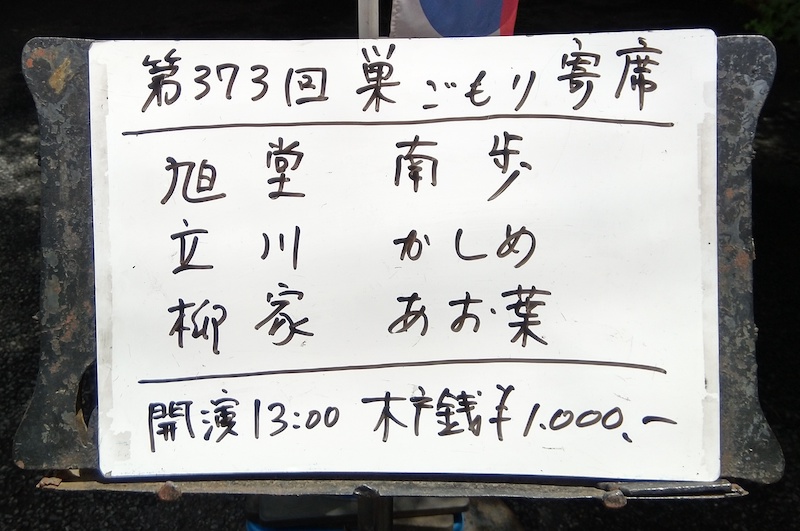 第373回 巣ごもり寄席
旭堂 南歩
立川 かしめ
柳家 あお葉
開演13:00 木戸銭¥1.000,-